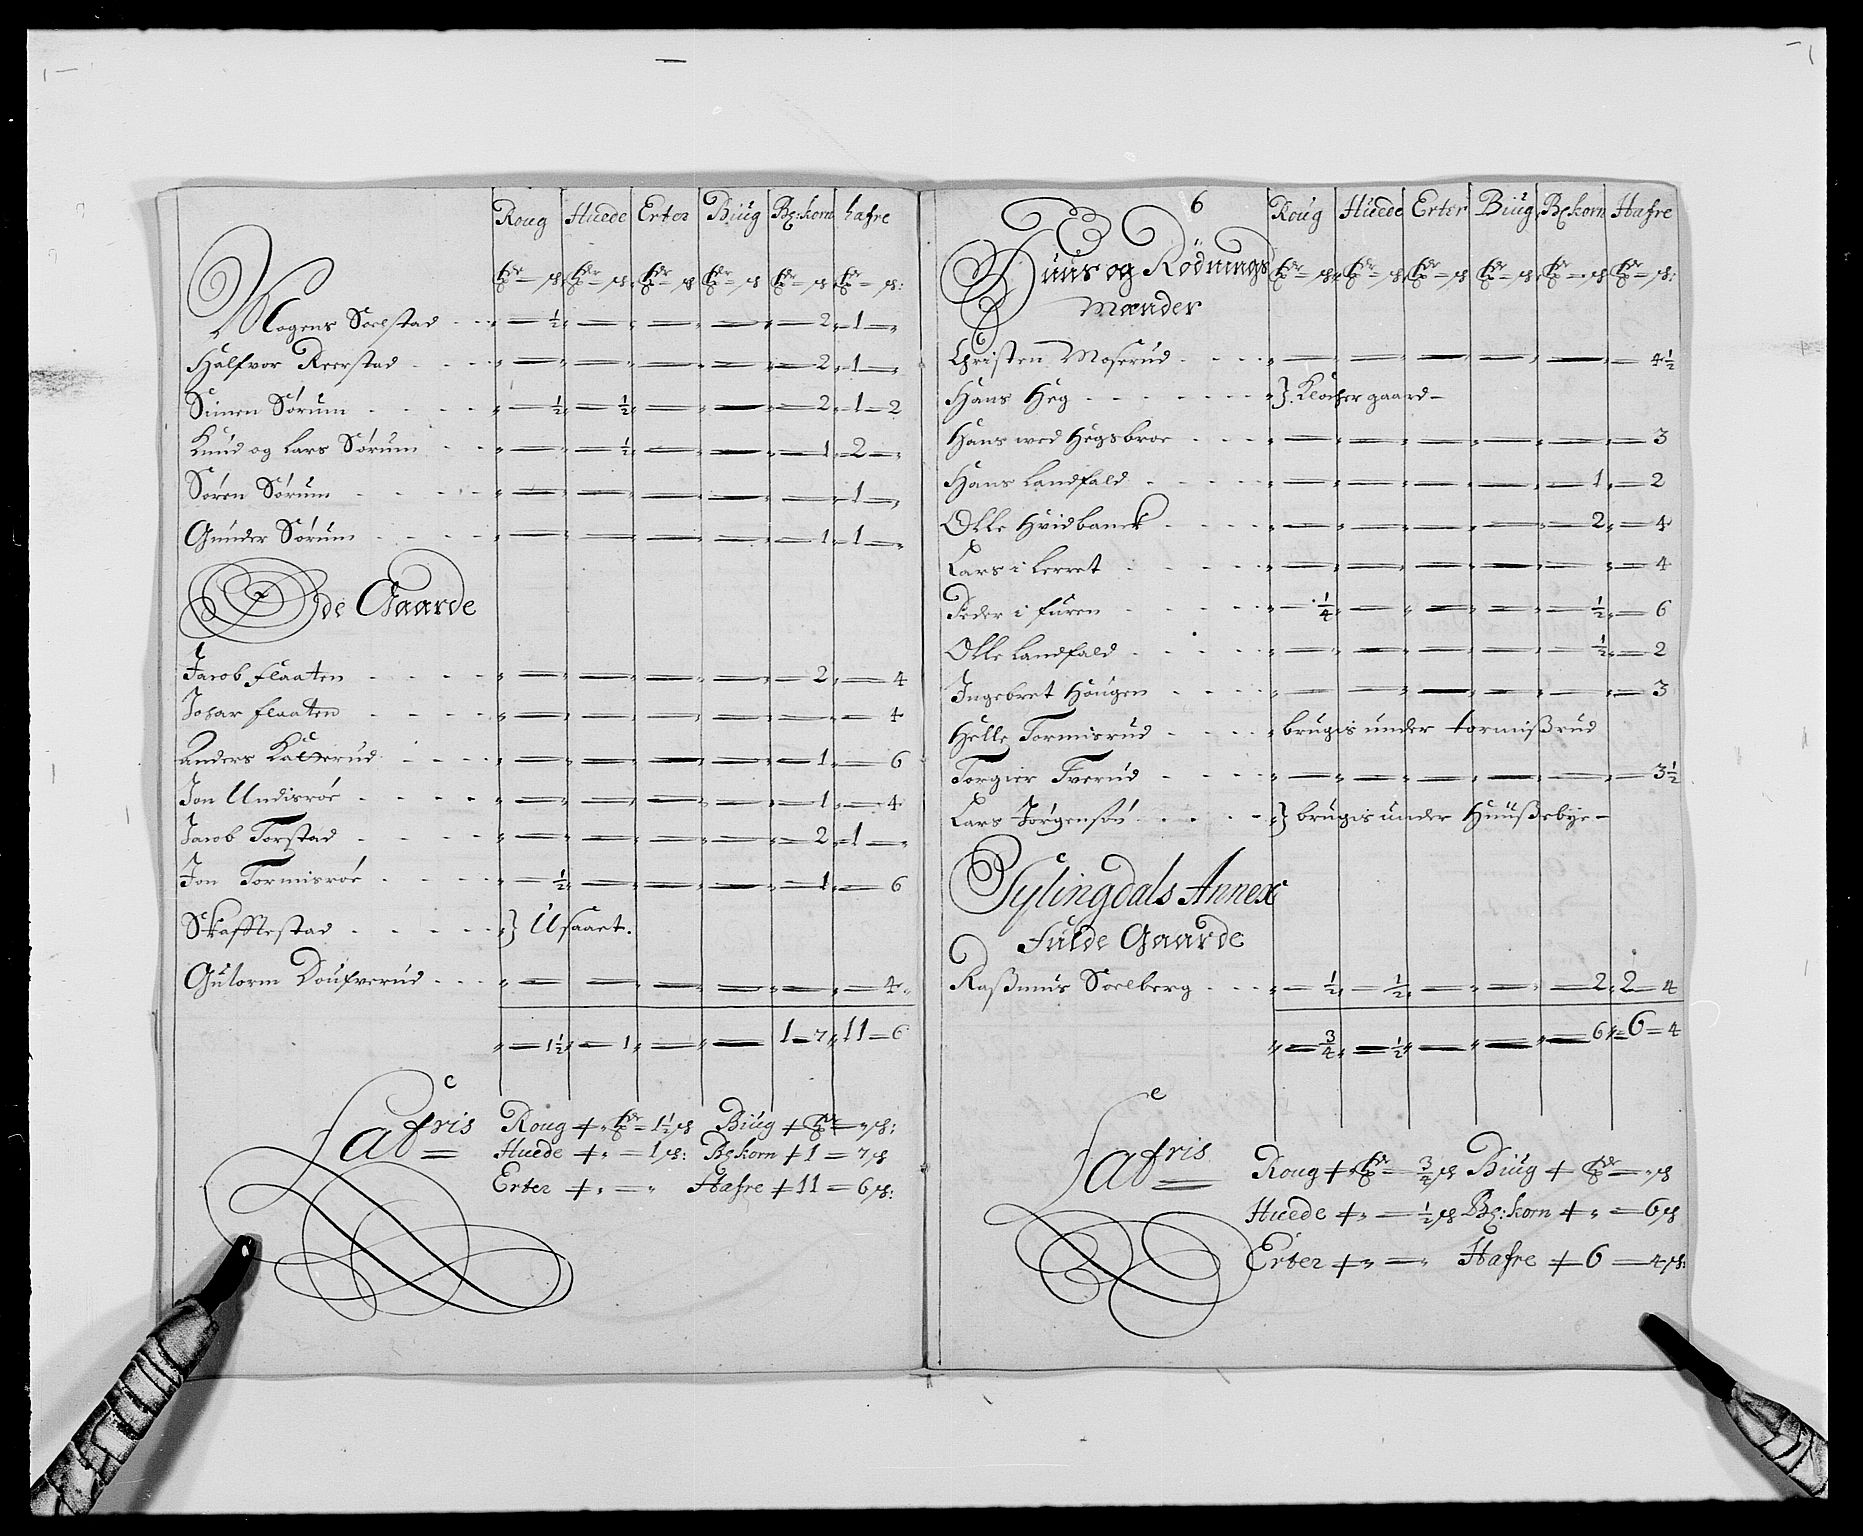 Roug Huede Erter Biug Bl:korn hafre
Mogens Soelstad - - „ — ½ „ — „ — „ — „ — 2 „ 1 — „
Halfvor Reerstad - - - „ — „ — „ — „ — „ — 2 „ 1 — „
Simen Sørum - - - - „ — ½ „ — ½ „ — „ — „ — 2 „ 1 — 2
Knud og Lars Sørum - - „ — „ — ½ „ — „ — „ — 1 „ 2 — „
Søren Sørum - - - - „ — „ — „ — „ — „ — „ 1 — „
Gunder Sørum - - - - „ — „ — „ — „ — „ — 1 „ 1 — „
Øde Gaarde
Jacob Flaaten - - - - „ — „ — „ — „ — „ — 2 „ — 4
Johar flaaten - - - - „ — „ — „ — „ — „ — „ — 4
Anders Kalterud - - - „ — „ — „ — „ — „ — 1 „ — 6
Jon Undisröe - - - - „ — „ — „ — „ — „ — 1 „ — 4
Jacob Torstad - - - „ — „ — „ — „ — „ — 2 „ 1 — „
Jon Tormisröe - - - - „ — ½ „ — „ — „ — „ — 1 „ — 6
Skafflestad - - - - - „ } Usaaet.
Gutorm Doufverud - - - „ — „ — „ — „ — „ — „ — 4 „
„ — 1½ „ — 1 „ — „ — „ 1 — 7 „ 11 — 6
Lateris Roug + „ — 1½ Biug + — „
Huede + „ — 1 Blkorn + 1 — 7
Erter + „ — „ Hafre + 11 — 6
6
Roug Huede Erter Biug Blkorn Hafre
Huus og Rødnings
Mænder
Christen Moserud - - - „ — „ — „ — „ — „ — „ — 4½
Hans Heg - - - - - - „ } Klocher gaard —
Hans wed Hegsbroe - - - „ — „ — „ — „ — „ — „ — 3
Hans Landfald - - - - „ — „ — „ — „ — „ — 1 „ — 2
Olle Hvidbanck - - - - „ — „ — „ — „ — „ — 2 „ — 4
Lars i Lerret - - - - „ — „ — „ — „ — „ — „ — 4
Peder i furen - - - - „ — ¼ „ — „ — „ — „ — ½ „ — 6
Olle Landfald - - - - „ — „ — „ — „ — „ — ½ „ — 2
Ingebret Haugen - - - - „ — „ — „ — „ — „ — „ — 3
Helle Tormisrud - - - - „ brugis under tormißrud
Torgier Tverud - - - - „ — „ — „ — „ — „ — „ — 3½
Lars Jørgensøn - - - - „ } brugis under Huußebye —
Sylingdals Annex
Fulde Gaarde
Raßmus Soelberg - - - „ — ½ „ — ½ „ — „ — „ — 2 „ 2 — 4
„ — ¾ „ — ½ „ — „ — „ — 6 „ 6 — 4
Lateris Roug + „ — ¾ Biug + — „
Huede + „ — ½ Bl:korn + „ — 6
Erter + „ — „ Hafre + 6 — 4